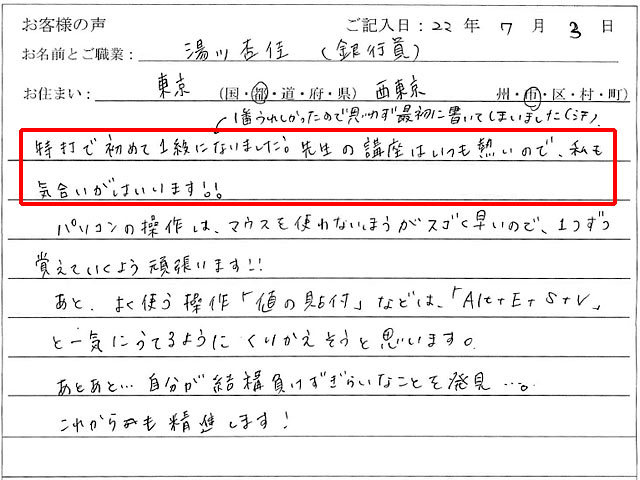 お客様の声 ご記入日：22年 7月 3日
お名前とご職業： 湯川杏佳 （銀行員）
お住まい： 東京 （国・都・道・府・県） 西東京 州・市・区・村・町）
1番うれしかったので思わず最初に書いてしまいました
特打で初めて1級になりました。先生の講座はいつも熱いので、私も
気合いがはいります!!
パソコンの操作は、マウスを使わないほうがスゴく早いので、1つずつ
覚えていくよう頑張ります!!
あと、よく使う操作「値の貼付」などは、「Alt+E+S+V」
と一気にうてるようにくりかえそうと思います。
あとあと…自分が結構負けずぎらいなことを発見…。
これからも精進します！